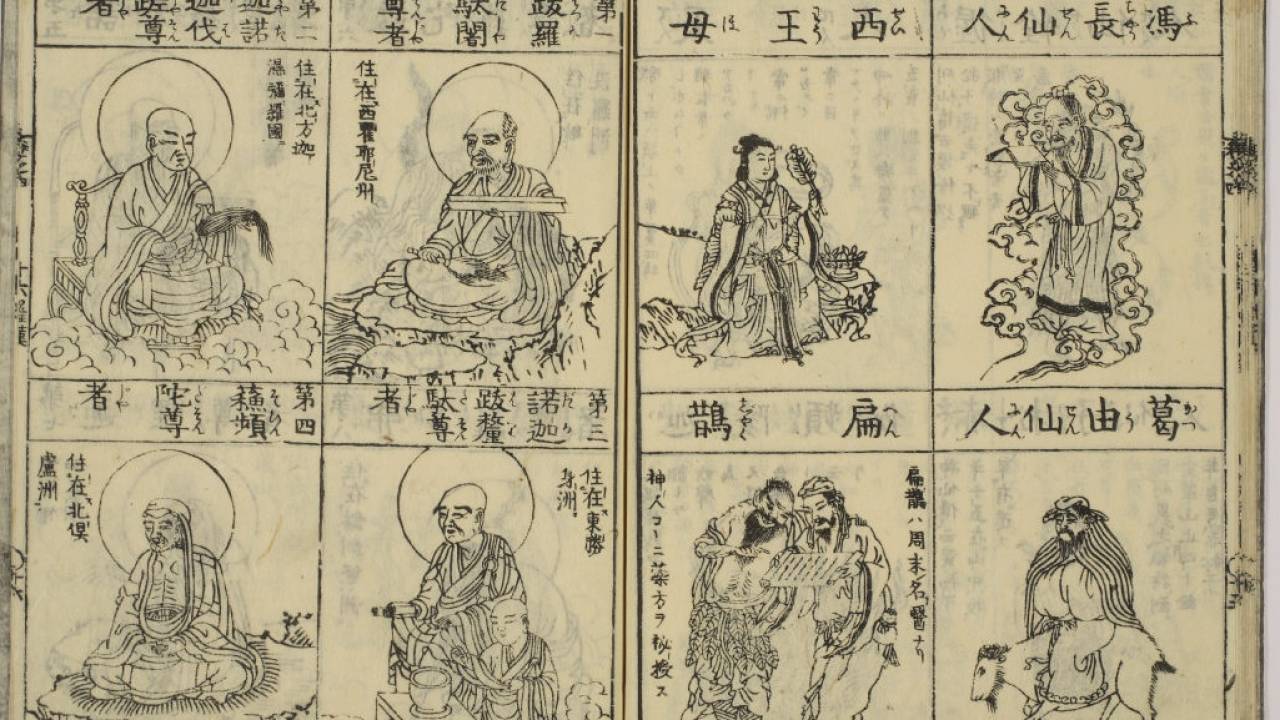 馮長仙人
西王母
葛由仙人
扁鵲
扁鵲ハ周末名醫ナリ
神人コヽニ薬方ヲ秘授ス
第一
跋羅
駄闍
尊者
住在西瞿耶尼州
第二
迦諾
迦伐
蹉尊
者
住在北方迦
濕彌羅國
第三
諾迦
跋釐
駄尊
者
住在東勝
身洲
第四
頻
陀尊
者
住在北倶
盧洲
十六羅漢